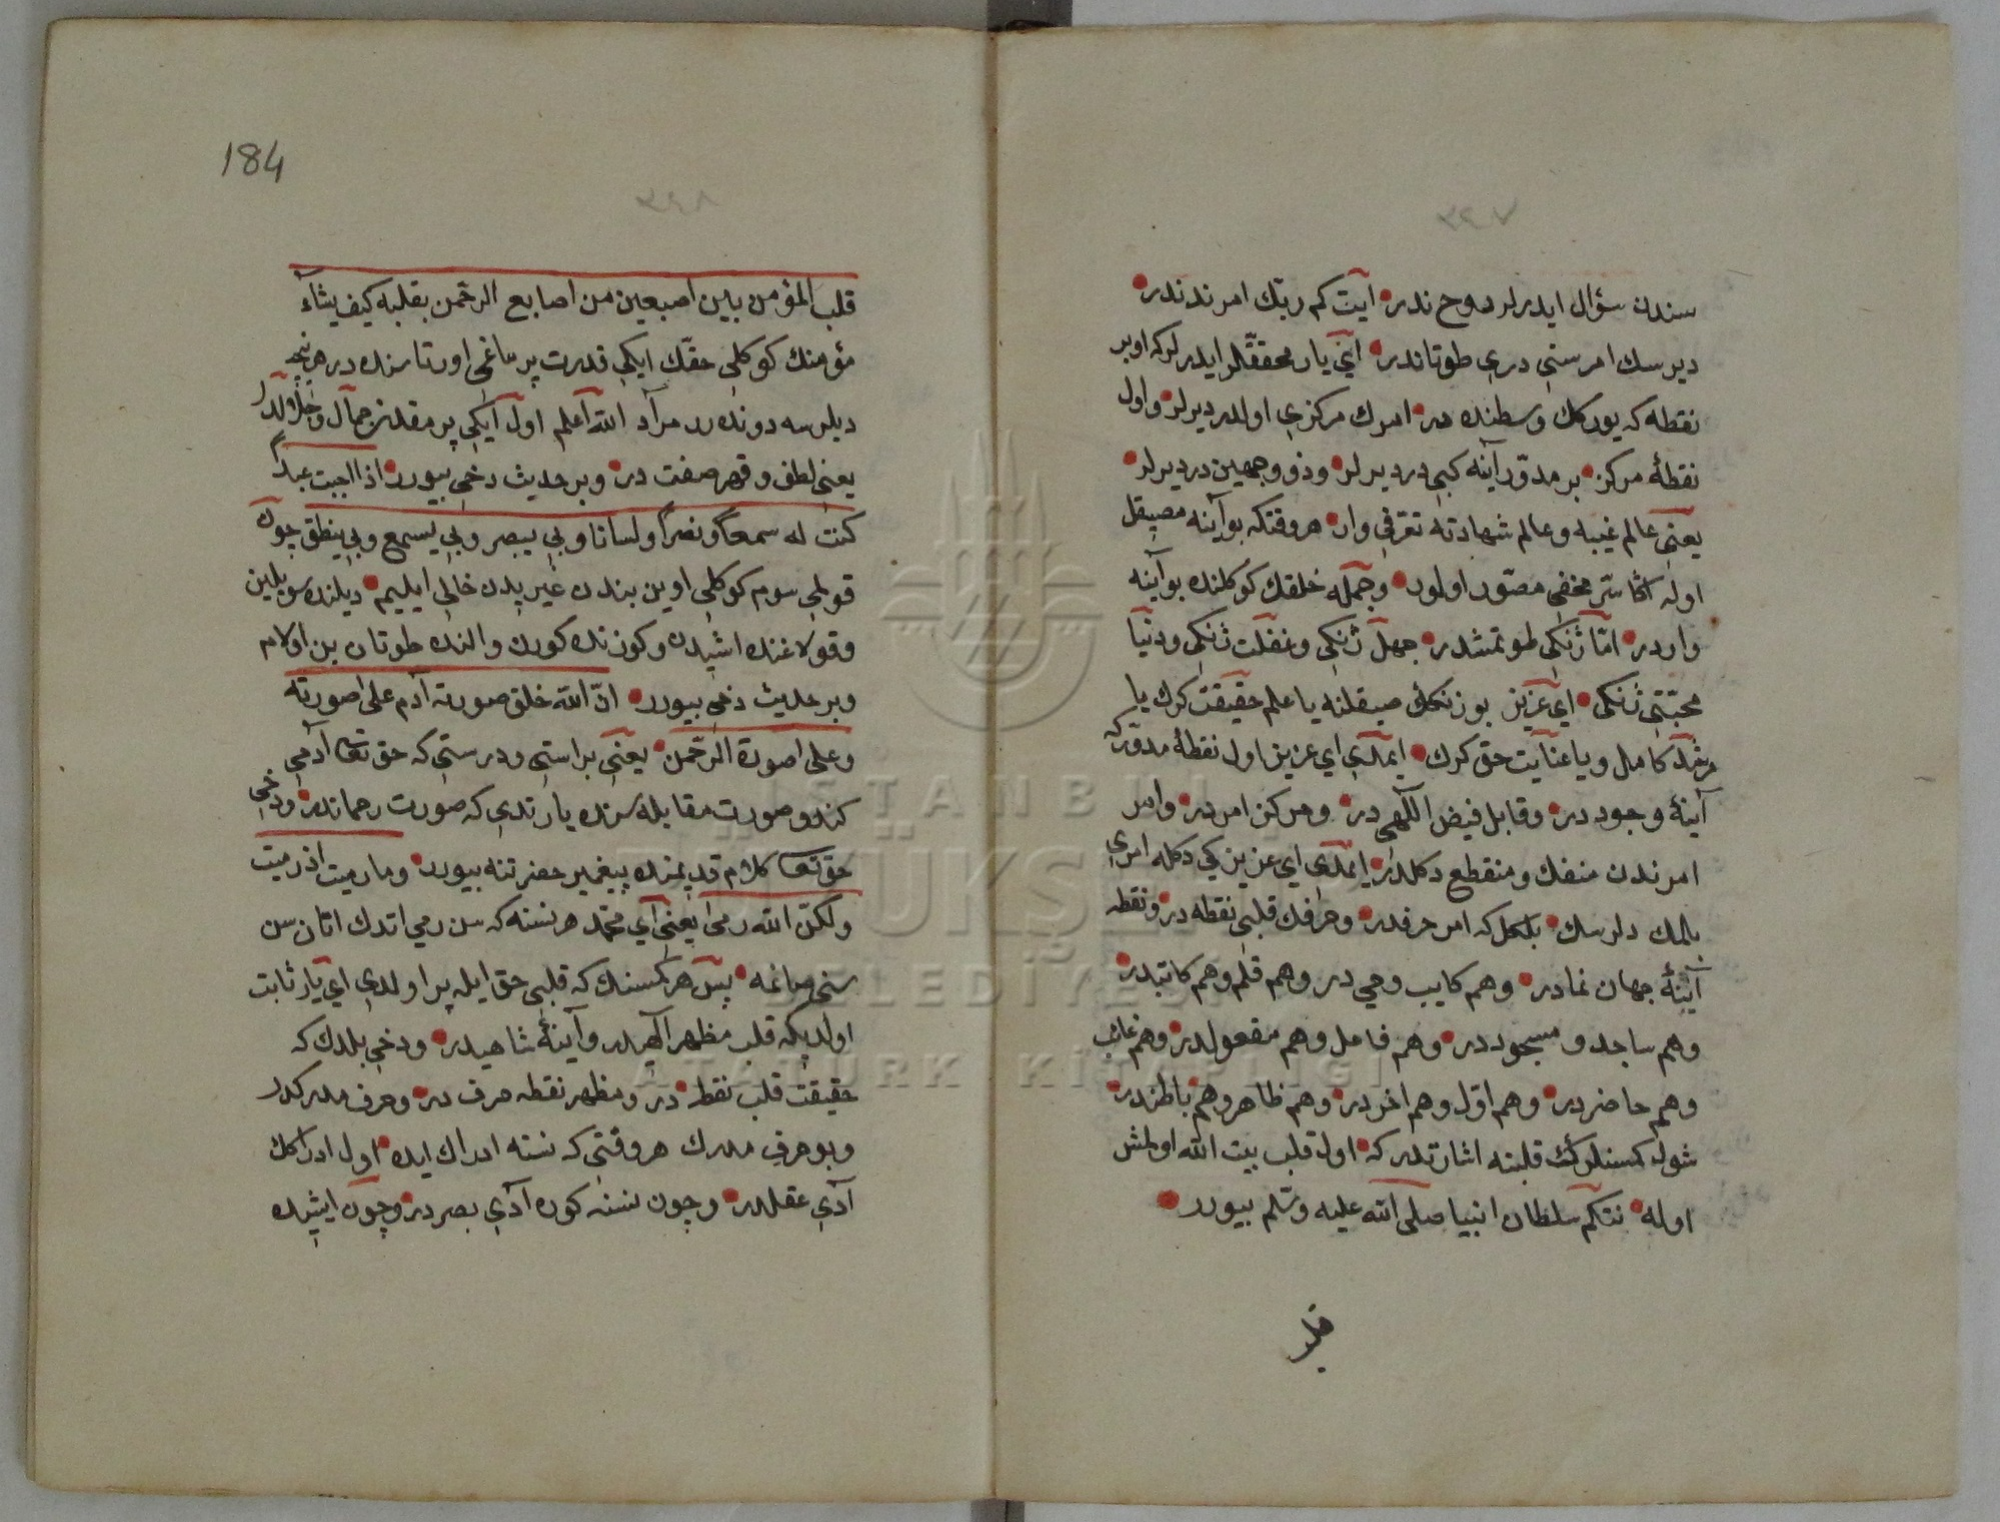 سندن سؤال ايدرلر روح ندر ايت كم ربك امرندندر
ديرسك امر سنى درى طوتاندر اينى يار محققلر ايدرلر كه اوبر
نقطه كه يوركك وسطنده در امرك مركزى اولدر ديرلر واول
نقطهٔ مركز بر مدوّر آينه كبى در ديرلر وذو وجهين در ديرلر
يعنى عالم غيبه وعالم شهادته تعرفى وار هر وقتكه بو آينه مصيقل
اوله اڭا سرّ مخفى مصوّر اولور وجمله خلقك كوكلنده بو آينه
واردر امّا ژنكى طوتمشدر جهل ژنكى وغفلت ژنكى ودنيا
محبّتى ژنكى اى عزيز بو ژنكك صيقلنه يا علم حقيقت كرك يا
مرشد كامل ويا عنايت حق كرك ايمدى اى عزيز اول نقطهٔ مدوّر كه
آينهٔ وجود در وقابل فيض الٓهى در ومركز امر در وامر
امرندن منفك ومنقطع دكلدر ايمدى اى عزيز كى دكله امرى
بلمك دلرسك بلكل كه امر حرفدر وحرفك قلبى نقطه در ونقطه
آينهٔ جهان نمادر وهم كايب وحي در وهم قلم وهم كاتبدر
وهم ساجد و مسجوددر وهم فاعل وهم مفعولدر وهم غائب
وهم حاضر در وهم اوّل وهم اخر در وهم ظاهر وهم باطندر
شول كمسنلرك قلبنه اشارتدر كه اول قلب بيت الله اولمش
اوله نتكم سلطان انبيا صلى الله عليه وسلّم بيورر
قلب
184
قلب المؤمن بين اصبعين من اصابع الرحمن يقلبه كيف يشاء
مؤمنك كوكلى حقّك ايكى قدرت پرماغى اورتاسنده در هر نيجه
ديلرسه دوندرر مراد الله اعلم اول ايكى پرمقدن جمال وجلالدر
يعنى لطف وقهر صفت در وبر حديث دخى بيورر اذا احبت عبداً
كنت له سمعاً وبصراً ولسانا وبى يبصر وبى يسمع وبى ينطق چون
قولمى سوم كوكلى اوين بندن غيريدن خالى ايليم ديلنده سويلين
وقولاغنده اشيدن وكوزنده كورن والنده طوتان بن اولام
وبر حديث دخى بيورر انّ الله خلق صورته آدم على صورته
وعلى صورة الرحمن يعنى براستى ودرستى كه حق تعا آدمى
كندو صورت مقابله سنده ياراتدى كه صورت رحماندر ودخى
حق تعا كلام قديمنده پيغمبر حضرتنه بيورر وما رميت اذ رميت
ولكنّ الله رمى يعنى اى محمد هر نسنه كه سن رمى اتدك اتان سن
سنى صانمه پس هر كسنك كه قلبى حق ايله پر اولدى اى يار ثابت
اولديكه قلب مظهر الٓهيدر وآينهٔ شاهيدر ودخى بلدك كه
حقيقت قلب نقطه در ومظهر نقطه حرف در وحرف مدركدر
وبو حرف مدرك هر وقتى كه نسنه ادراك ايده اول ادراكك
آدى عقلدر وچون نسنه كوره آدى بصر در وچون ايشيده